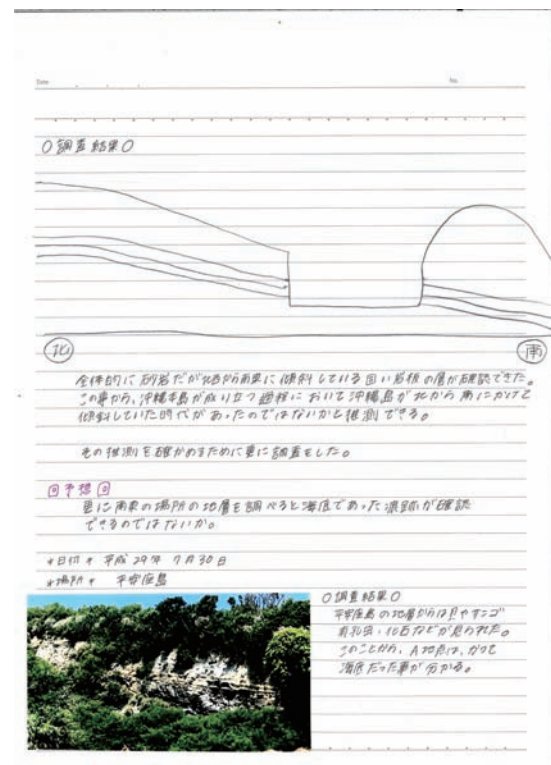 Date
No.
○調査結果○
北
南
全体的に砂岩だが北西から南東に傾斜している固い岩板の層が確認できた。
この事から、沖縄本島が成り立つ過程において沖縄島が北から南にかけて
傾斜していた時代があったのではないかと推測できる。
その推測を確かめるために更に調査をした。
回予想回
更に南東の場所の地層を調べると海底であった痕跡が確認
できるのではないか。
*日付* 平成29年 7月30日
*場所* 平安座島
○調査結果○
平安座島の地層からは貝やサンゴ
有孔虫、化石などが見られた。
このことから、A地点は、かつて
海底だった事が分かる。